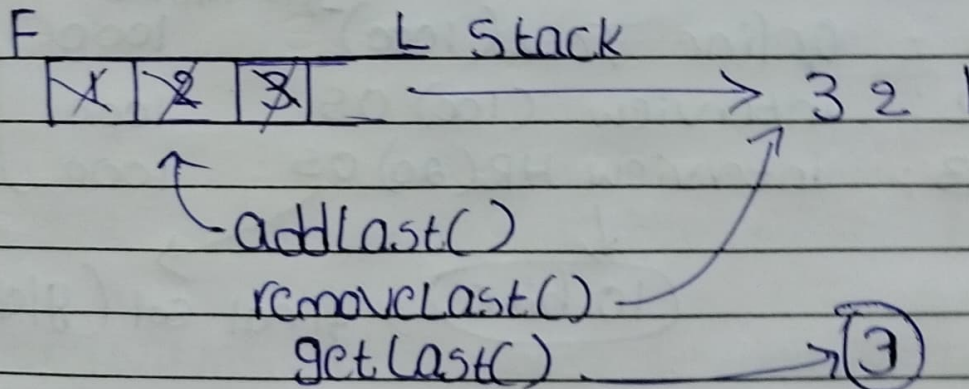 F L Stack
1 2 3 3 2 1
addLast()
removeLast()
getLast() 3